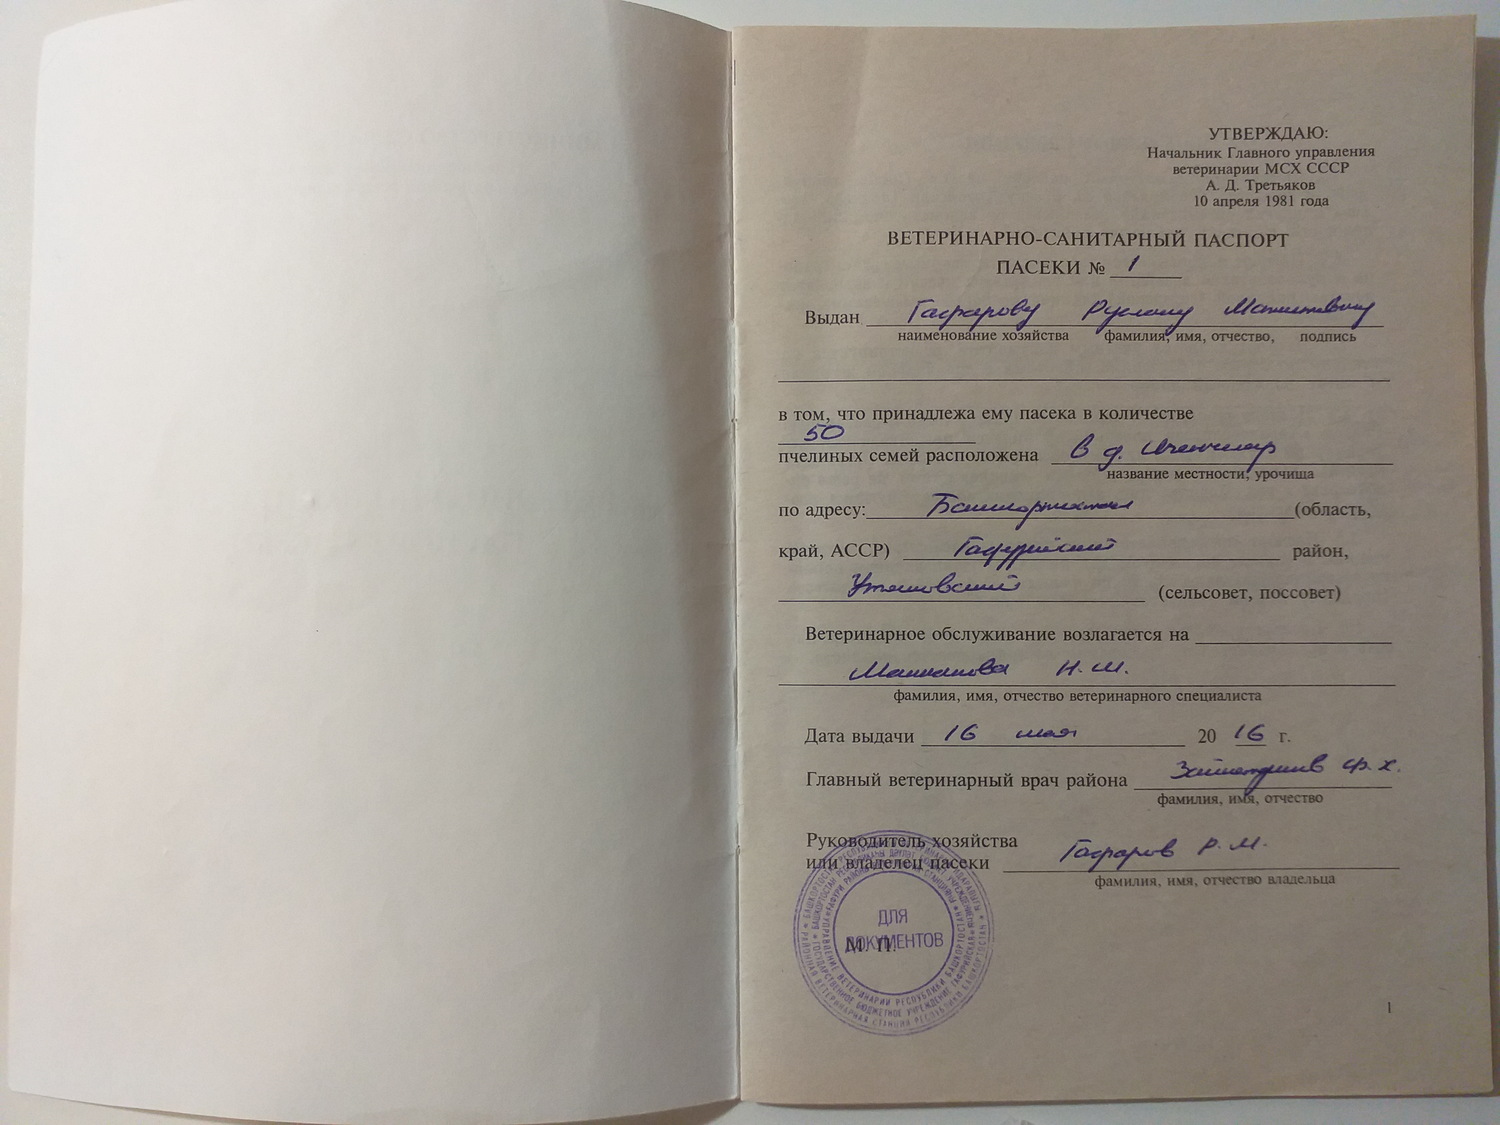 УТВЕРЖДАЮ:
Начальник Главного управления
ветеринарии МСХ СССР
А. Д. Третьяков
10 апреля 1981 года
ВЕТЕРИНАРНО-САНИТАРНЫЙ ПАСПОРТ
ПАСЕКИ № 1
Выдан Гаффарову Руслану
наименование хозяйства фамилия, имя, отчество, подпись
в том, что принадлежа ему пасека в количестве
50
пчелиных семей расположена в д.
название местности, урочища
по адресу: Башкортостан (область,
край, АССР) Гафурийский район,
Утяковский (сельсовет, поссовет)
Ветеринарное обслуживание возлагается на
Н.Ш.
фамилия, имя, отчество ветеринарного специалиста
Дата выдачи 16 мая 20 16 г.
Главный ветеринарный врач района Ф.Х.
фамилия, имя, отчество
Руководитель хозяйства
или владелец пасеки Гаффаров Р.М.
фамилия, имя, отчество владельца
ДЛЯ
ДОКУМЕНТОВ
М. П.
1